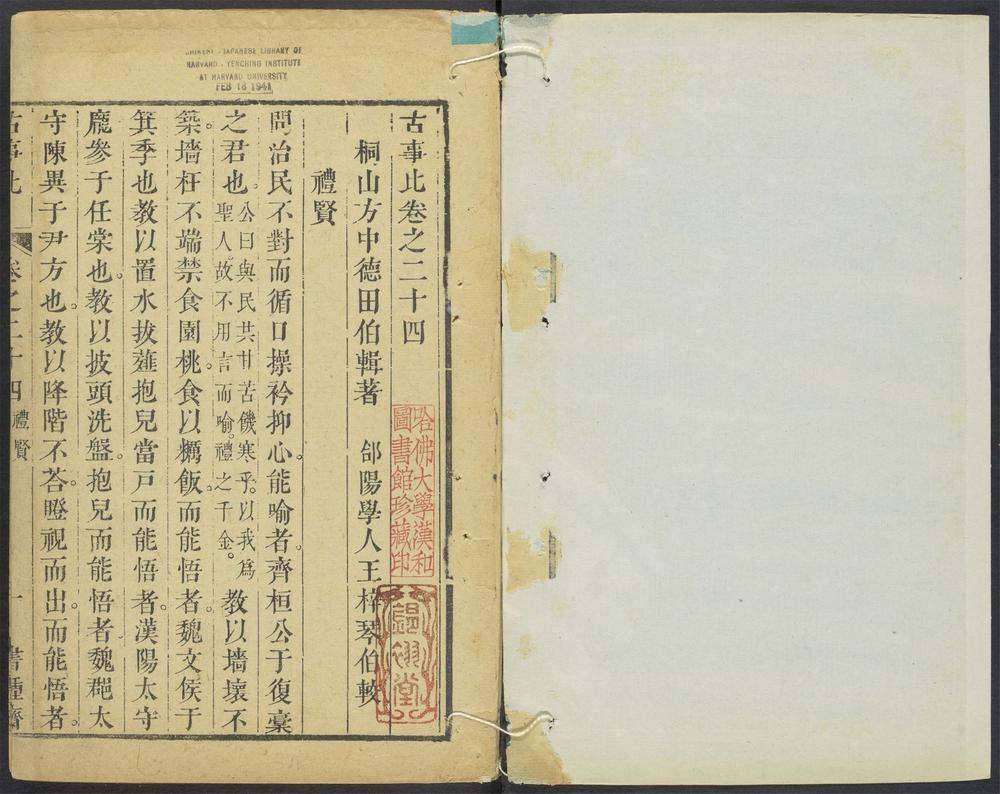 CHINESE - JAPANESE LIBRARY OF
HARVARD - YENCHING INSTITUTE
AT HARVARD UNIVERSITY
FEB 18 1941
古事比卷之二十四
桐山方中德田伯輯著　郃陽學人王梓琴伯較
禮賢
問治民不對而循口操衿抑心。能喻者。齊桓公于復槀
之君也。公曰與民共甘苦饑寒乎。以我爲聖人。故不用言而喻。禮之千金。教以墻壞不
築。墻枉不端禁食園桃。食以糲飯。而能悟者。魏文侯于
箕季也教以置水拔薤抱兒當戸而能悟者。漢陽太守
龐參于任棠也。教以披頭洗盤。抱兒而能悟者魏郡太
守陳異于尹方也。教以降階不荅。瞪視而出。而能悟者。
古事比
卷之二十四 禮賢
書種齋
哈佛大學漢和
圖書館珍藏印